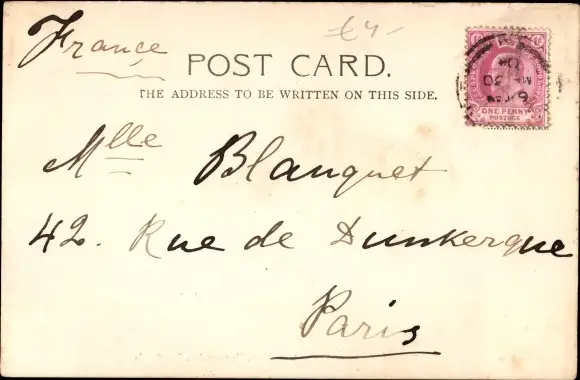 France
£4-
POST CARD.
THE ADDRESS TO BE WRITTEN ON THIS SIDE.
ONE PENNY
POSTAGE
Mlle Blanquet
42. Rue de Dunkerque
Paris